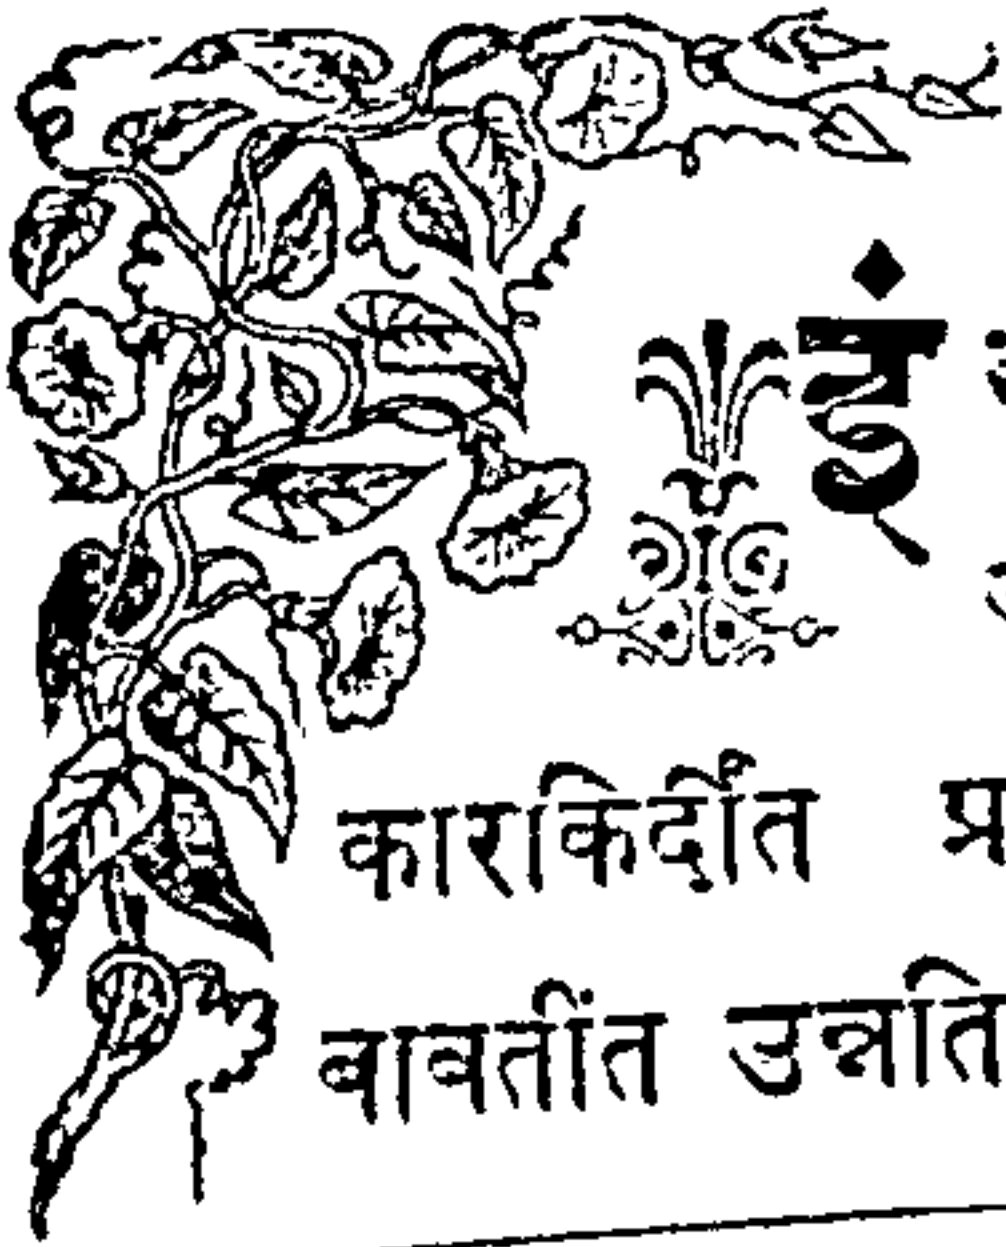 इं
कारकिर्दीत प्र
बाबतींत उन्नति